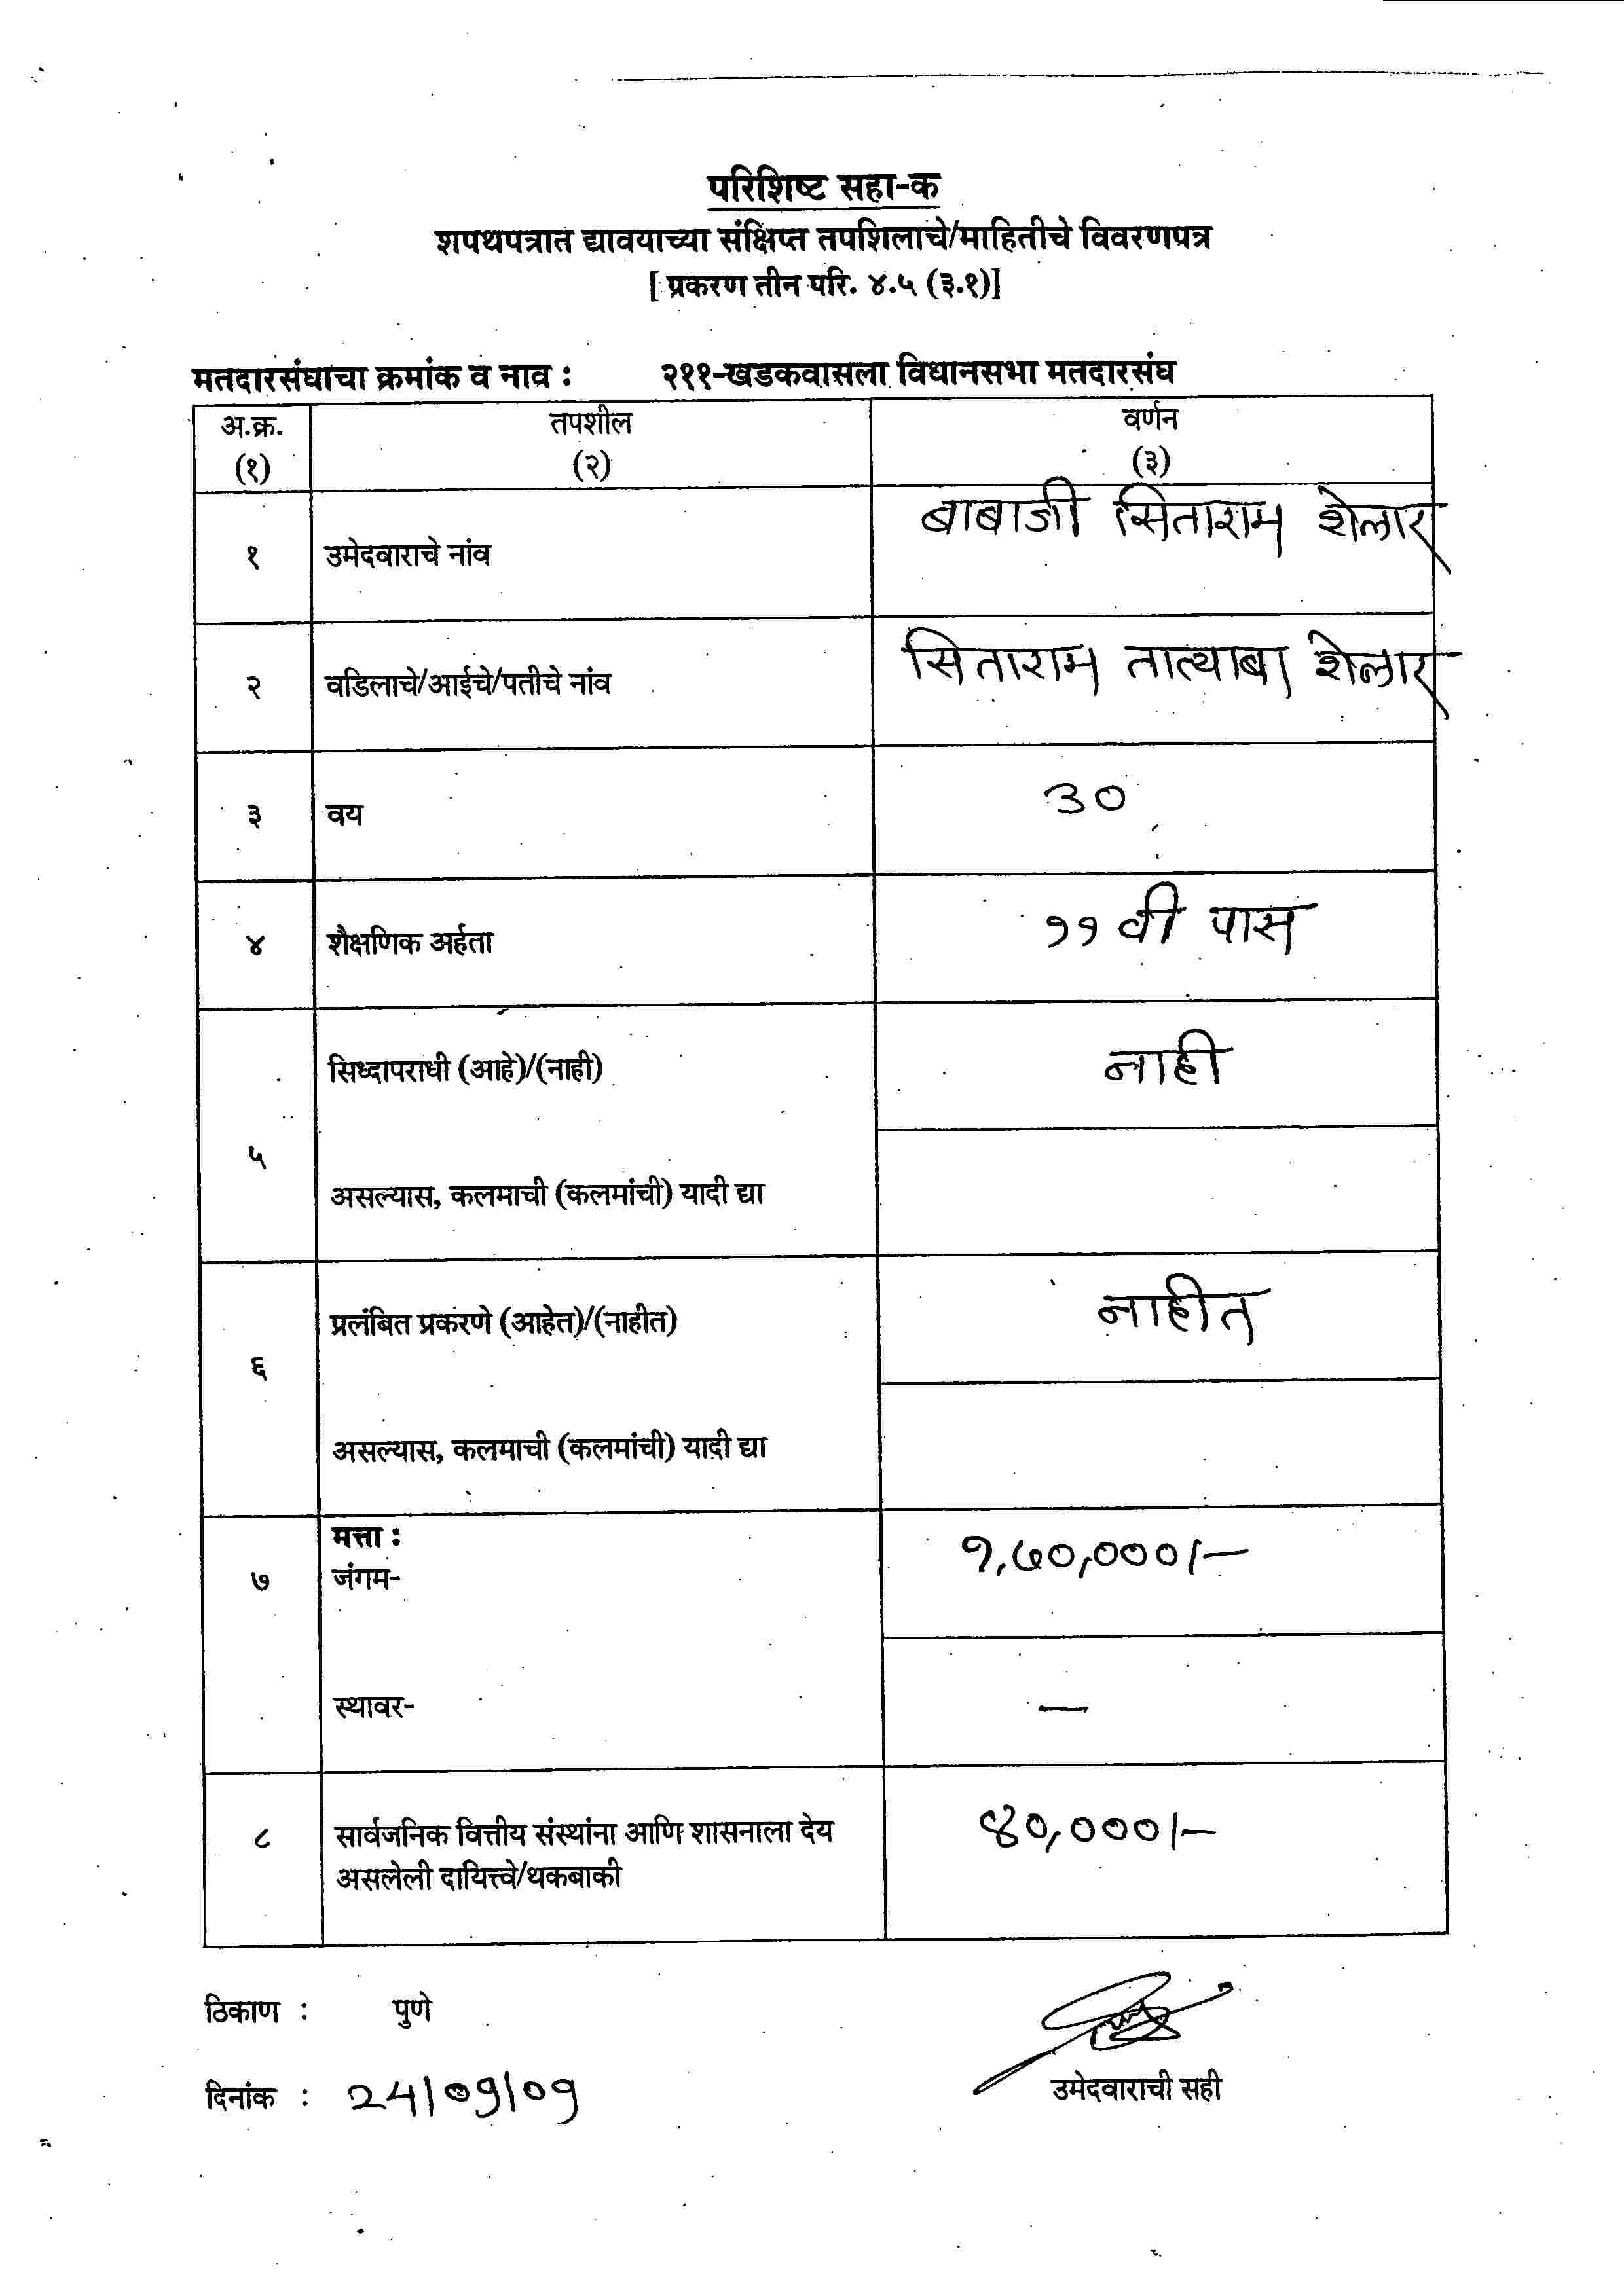 परिशिष्ट सहा-क
शपथपत्रात द्यावयाच्या संक्षिप्त तपशिलाचे/माहितीचे विवरणपत्र
[ प्रकरण तीन परि. ४.५ (३.१)]
मतदारसंघाचा क्रमांक व नाव : २११-खडकवासला विधानसभा मतदारसंघ
अ.क्र. तपशील वर्णन
(१) (२) (३)
१ उमेदवाराचे नांव बाबाजी सिताराम शेलार
२ वडिलाचे/आईचे/पतीचे नांव सिताराम तात्याबा शेलार
३ वय ३०
४ शैक्षणिक अर्हता ११ वी पास
सिध्दापराधी (आहे)/(नाही) नाही
५
असल्यास, कलमाची (कलमांची) यादी द्या
प्रलंबित प्रकरणे (आहेत)/(नाहीत) नाहीत
६
असल्यास, कलमाची (कलमांची) यादी द्या
मत्ता :
७ जंगम- १,७०,०००/-
स्थावर- —
८ सार्वजनिक वित्तीय संस्थांना आणि शासनाला देय ४०,०००/-
असलेली दायित्त्वे/थकबाकी
ठिकाण : पुणे
दिनांक : 24/09/09
उमेदवाराची सही